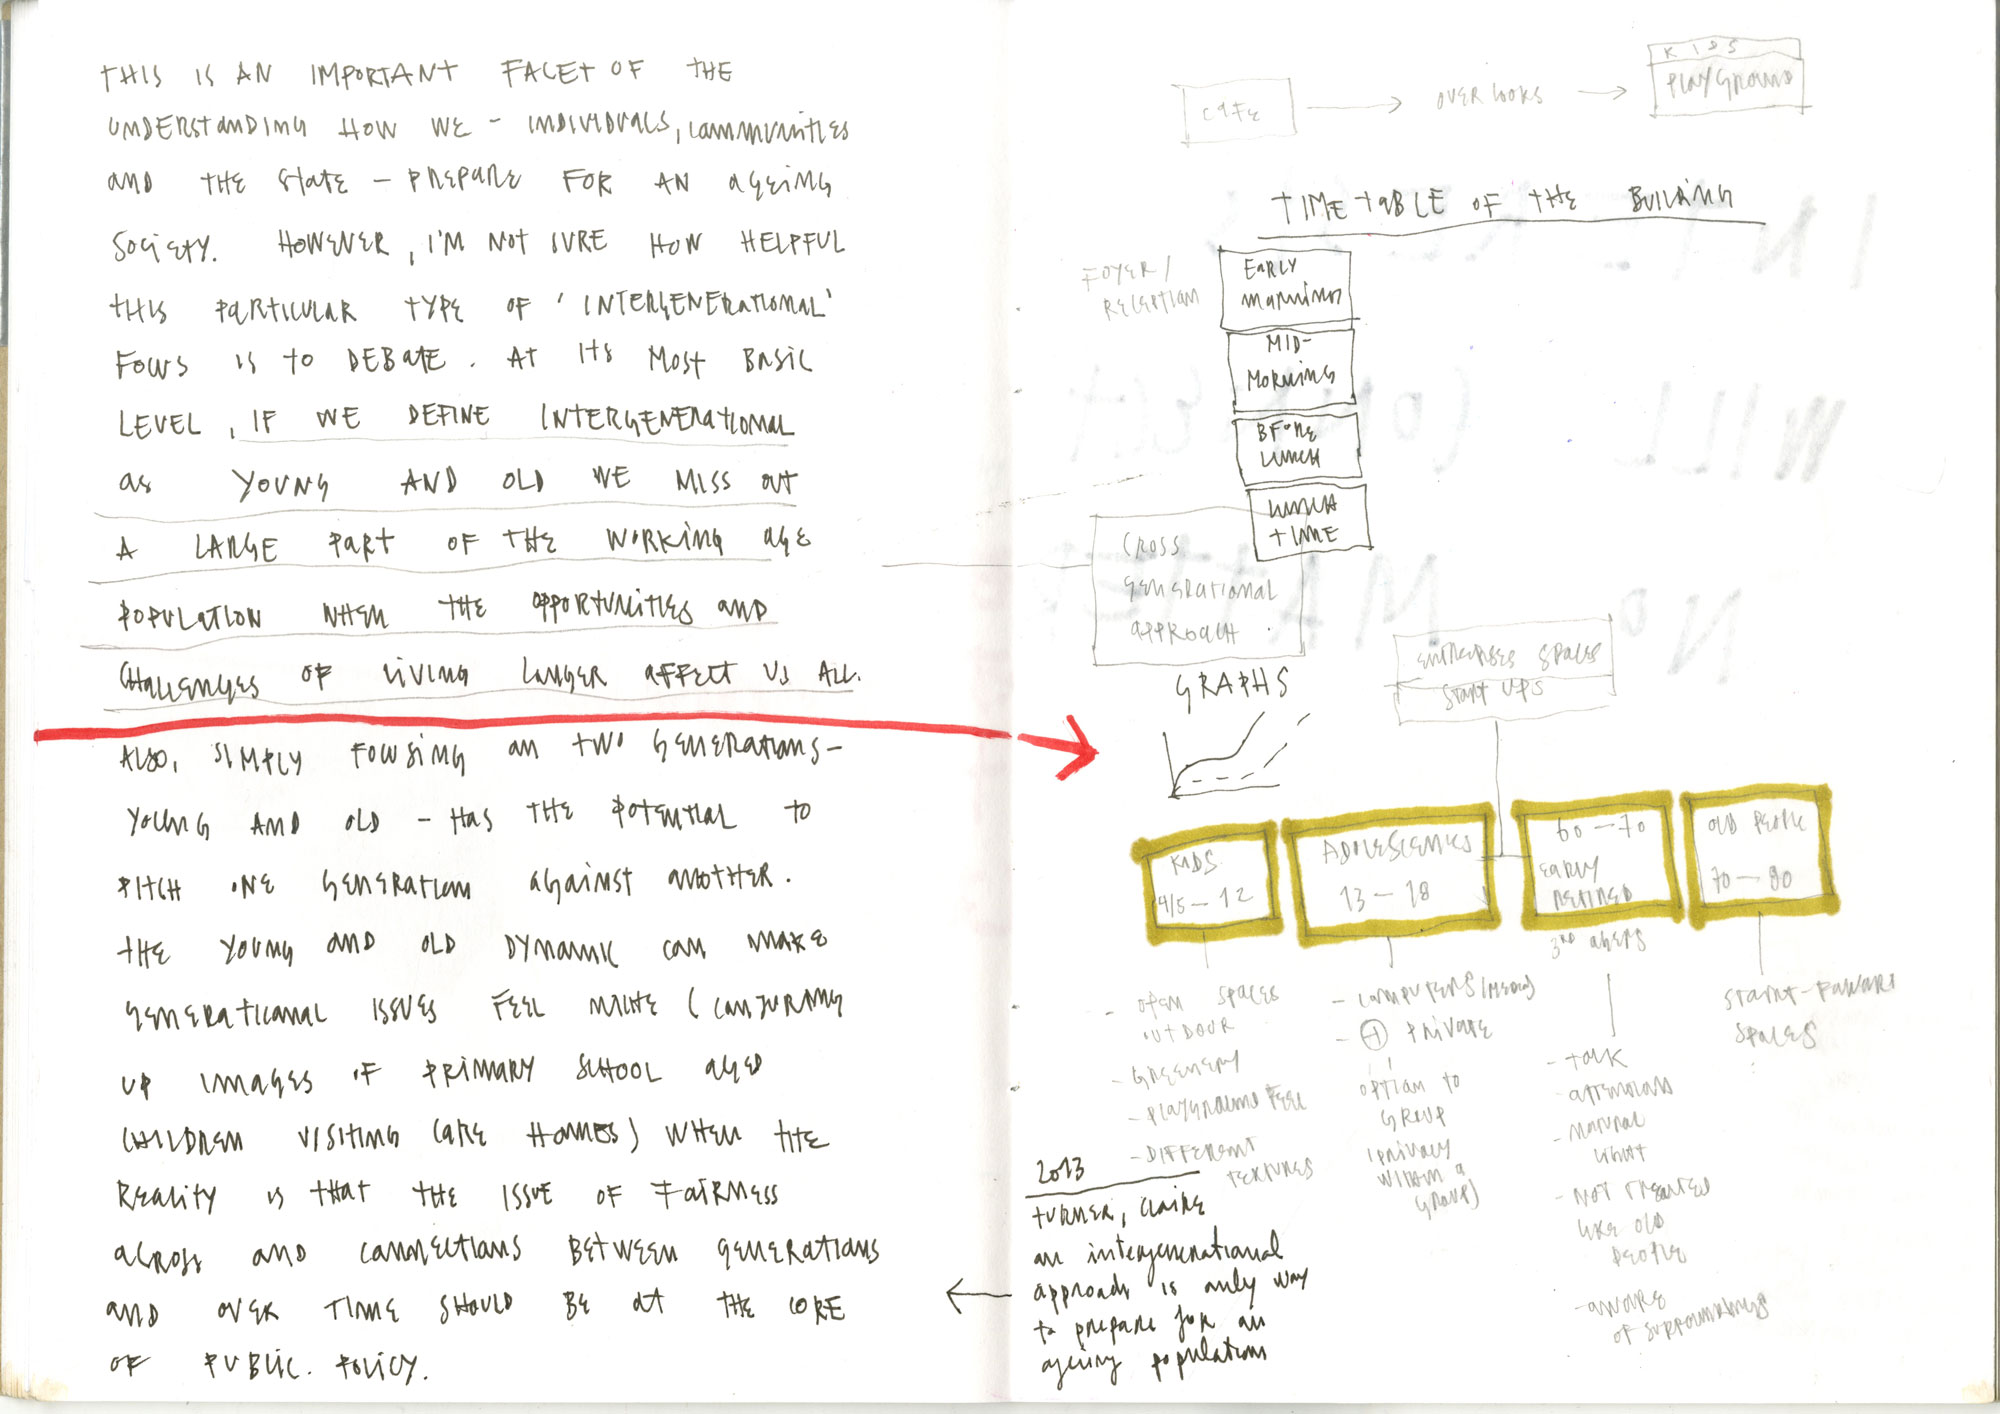 THIS IS AN IMPORTANT FACET OF THE
UNDERSTANDING HOW WE - INDIVIDUALS, COMMUNITIES
AND THE STATE - PREPARE FOR AN AGEING
SOCIETY. HOWEVER, I'M NOT SURE HOW HELPFUL
THIS PARTICULAR TYPE OF 'INTERGENERATIONAL'
FOCUS IS TO DEBATE. AT ITS MOST BASIC
LEVEL, IF WE DEFINE INTERGENERATIONAL
AS YOUNG AND OLD WE MISS OUT
A LARGE PART OF THE WORKING AGE
POPULATION WHEN THE OPPORTUNITIES AND
CHALLENGES OF LIVING LONGER AFFECT US ALL.
ALSO, SIMPLY FOCUSING ON TWO GENERATIONS -
YOUNG AND OLD - HAS THE POTENTIAL TO
PITCH ONE GENERATION AGAINST ANOTHER.
THE YOUNG AND OLD DYNAMIC CAN MAKE
GENERATIONAL ISSUES FEEL NICHE (CONJURING
UP IMAGES OF PRIMARY SCHOOL AGED
CHILDREN VISITING CARE HOMES) WHEN THE
REALITY IS THAT THE ISSUE OF FAIRNESS
ACROSS AND CONNECTIONS BETWEEN GENERATIONS
AND OVER TIME SHOULD BE AT THE CORE
OF PUBLIC. POLICY.
CAFE
OVERLOOKS
KIDS
PLAYGROUND
TIMETABLE OF THE BUILDING
FOYER/
RECEPTION
EARLY
MORNING
MID-
MORNING
BFORE
LUNCH
LUNCH
TIME
CROSS
GENERATIONAL
APPROACH
GRAPHS
SPACES
START UPS
KIDS
4/5 - 12
ADOLESCENCES
13 - 18
60 - 70
EARLY
RETIRED
3RD AGERS
OLD PEOPLE
70 - 90
- OPEN SPACES
OUTDOUR
- GREENERY
- PLAYGROUND FEEL
- DIFFERENT
TEXTURES
- COMPUTERS (MEDIA)
- PRIVATE
OPTION TO
GROUP
(PRIVACY
WITHIN A
GROUP)
- TALK
- NATURAL
LIGHT
- NOT TREATED
LIKE OLD
PEOPLE
- AWARE
OF SURROUNDINGS
SPACES
2013
TURNER, CLAIRE
an intergenerational
approach is only way
to prepare for an
ageing population